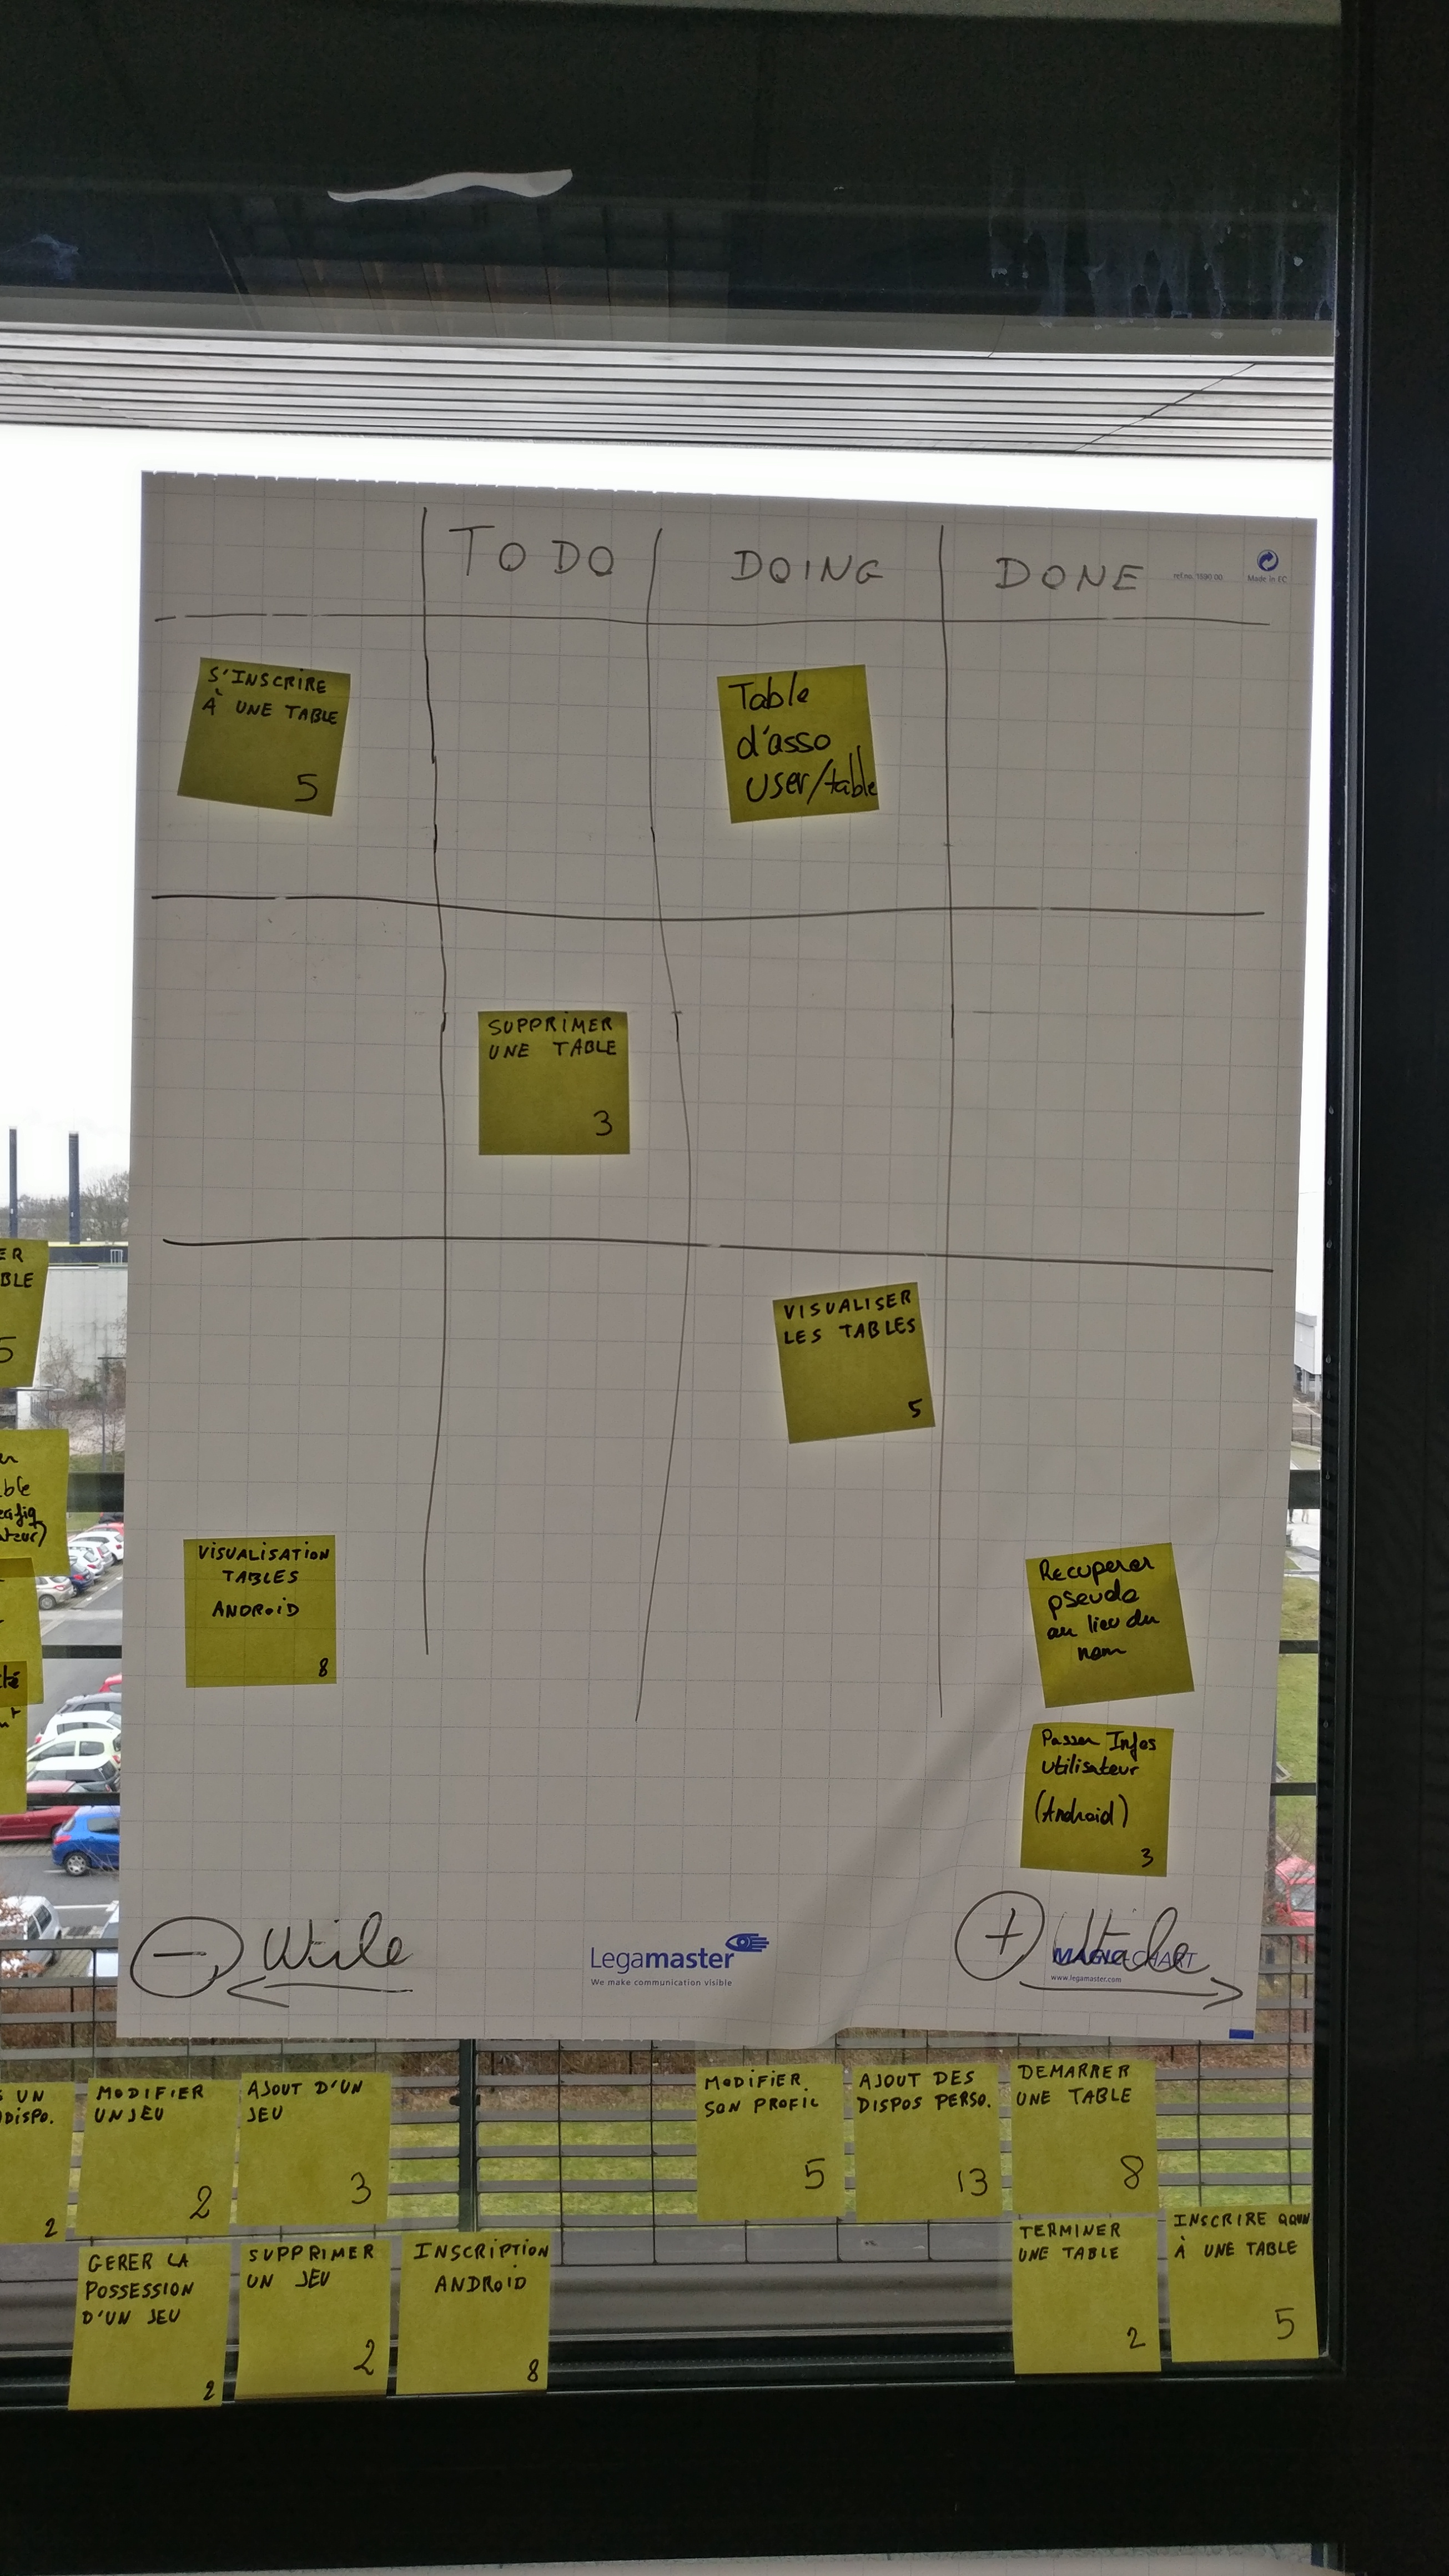 TO DO
DOING
DONE
ref.no. 1590 00
Made in EC
S'INSCRIRE
À UNE TABLE
5
Table
d'asso
user/table
SUPPRIMER
UNE TABLE
3
VISUALISER
LES TABLES
5
VISUALISATION
TABLES
ANDROID
8
Recuperer
pseudo
au lieu du
nom
Passer Infos
utilisateur
(Android)
3
- Utile
+ Utile
Legamaster
We make communication visible
MAGIC-CHART
www.legamaster.com
ER
BLE
5
UN
DISPO.
2
MODIFIER
UN JEU
2
AJOUT D'UN
JEU
3
MODIFIER
SON PROFIL
5
AJOUT DES
DISPOS PERSO.
13
DEMARRER
UNE TABLE
8
GERER LA
POSSESSION
D'UN JEU
2
SUPPRIMER
UN JEU
2
INSCRIPTION
ANDROID
8
TERMINER
UNE TABLE
2
INSCRIRE QQUN
À UNE TABLE
5